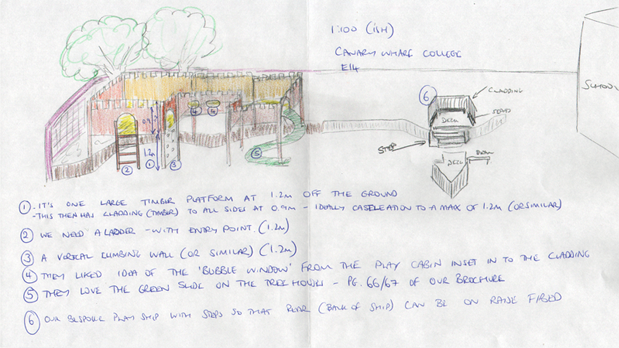 1:100 (ish)
CANARY WHARF COLLEGE
E14
6
CLADDING
DECK
STEP
DECK
SCHOOL
0.9
1.2m
4
4
2
1
3
5
1 - IT'S ONE LARGE TIMBER PLATFORM AT 1.2M OFF THE GROUND
- THIS THEN HAS CLADDING (TIMBER) TO ALL SIDES AT 0.9M - IDEALLY CASTELEATION TO A MAX OF 1.2M (OR SIMILAR)
2 WE NEED A LADDER - WITH ENTRY POINT (1.2M)
3 A VERTICAL CLIMBING WALL (OR SIMILAR) (1.2M)
4 THEY LIKED IDEA OF THE 'BUBBLE WINDOW' FROM THE PLAY CABIN INSET IN TO THE CLADDING
5 THEY LOVE THE GREEN SLIDE ON THE TREE HOUSE - PG. 66/67 OF OUR BROCHURE
6 OUR BESPOKE PLAY SHIP WITH STEPS SO THAT REAR (BACK OF SHIP) CAN BE ON RAISE